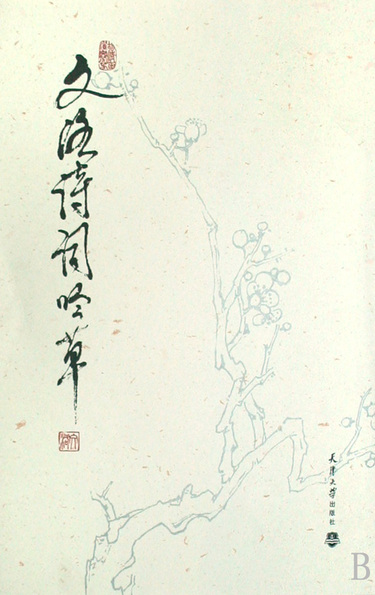 文洛诗词吟草
天津大学出版社
B